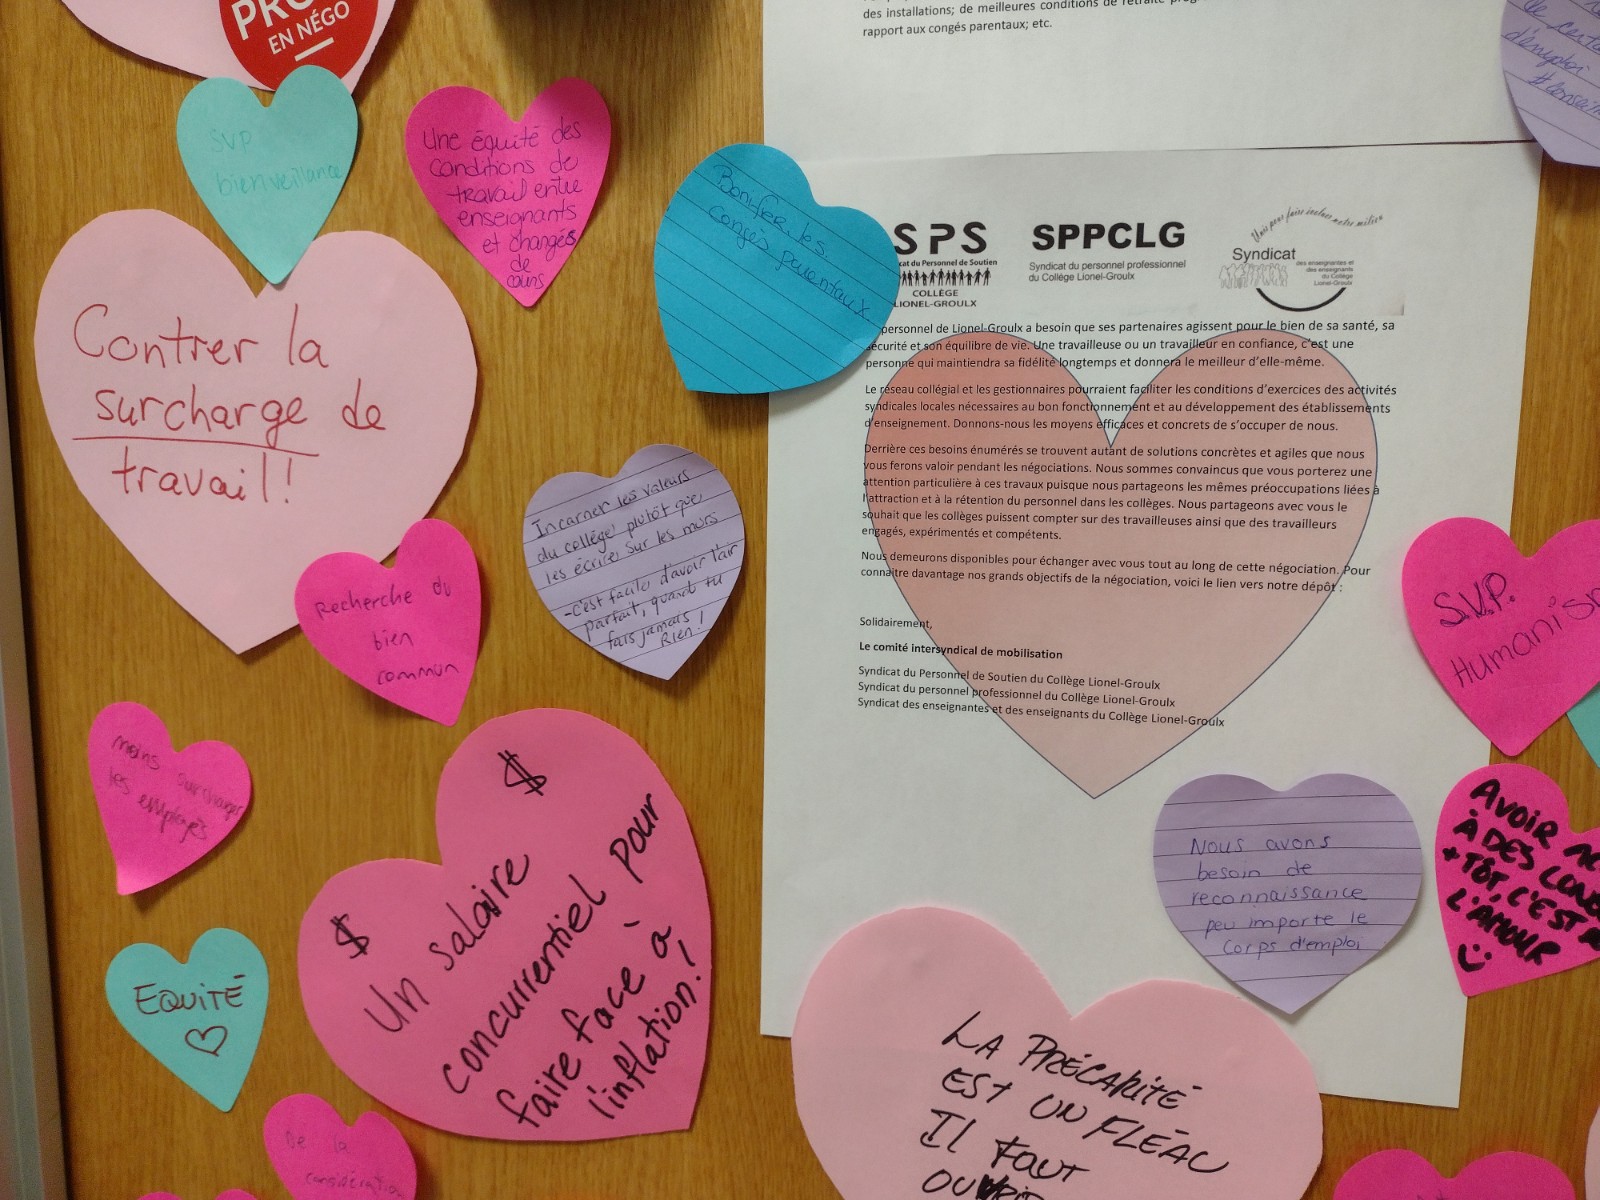 EN NÉGO
des installations; de meilleures conditions de retraite
rapport aux congés parentaux; etc.
d'emploi
SVP
bienveillance
Une équité des
conditions de
travail entre
enseignants
et chargés
de
cours
Bonifier les
congés parentaux
SPS
cat du Personnel de Soutien
COLLÈGE
LIONEL-GROULX
SPPCLG
Syndicat du personnel professionnel
du Collège Lionel-Groulx
Unis pour faire inclure notre milieu
Syndicat
des enseignantes et
des enseignants
du Collège
Lionel-Groulx
personnel de Lionel-Groulx a besoin que ses partenaires agissent pour le bien de sa santé, sa
sécurité et son équilibre de vie. Une travailleuse ou un travailleur en confiance, c'est une
personne qui maintiendra sa fidélité longtemps et donnera le meilleur d'elle-même.
Le réseau collégial et les gestionnaires pourraient faciliter les conditions d'exercices des activités
syndicales locales nécessaires au bon fonctionnement et au développement des établissements
d'enseignement. Donnons-nous les moyens efficaces et concrets de s'occuper de nous.
Derrière ces besoins énumérés se trouvent autant de solutions concrètes et agiles que nous
vous ferons valoir pendant les négociations. Nous sommes convaincus que vous porterez une
attention particulière à ces travaux puisque nous partageons les mêmes préoccupations liées à
l'attraction et à la rétention du personnel dans les collèges. Nous partageons avec vous le
souhait que les collèges puissent compter sur des travailleuses ainsi que des travailleurs
engagés, expérimentés et compétents.
Nous demeurons disponibles pour échanger avec vous tout au long de cette négociation. Pour
connaitre davantage nos grands objectifs de la négociation, voici le lien vers notre dépôt :
Solidairement,
Le comité intersyndical de mobilisation
Syndicat du Personnel de Soutien du Collège Lionel-Groulx
Syndicat du personnel professionnel du Collège Lionel-Groulx
Syndicat des enseignantes et des enseignants du Collège Lionel-Groulx
Contrer la
surcharge de
travail!
Incarner les valeurs
du collège plutôt que
les écrire sur les murs
-c'est facile d'avoir l'air
parfait, quand tu
fais jamais
Rien!
Recherche du
bien
commun
S.V.P.
Humanis
moins surcharger
les employés
$
$
Un salaire
concurrentiel pour
faire face à
l'inflation!
Nous avons
besoin de
reconnaissance
peu importe le
corps d'emploi
AVOIR
À DES
+TÔT, C'EST
L'AMOUR
EQUITÉ
LA PRÉCARITÉ
EST UN FLÉAU
IL FAUT
De la
considération